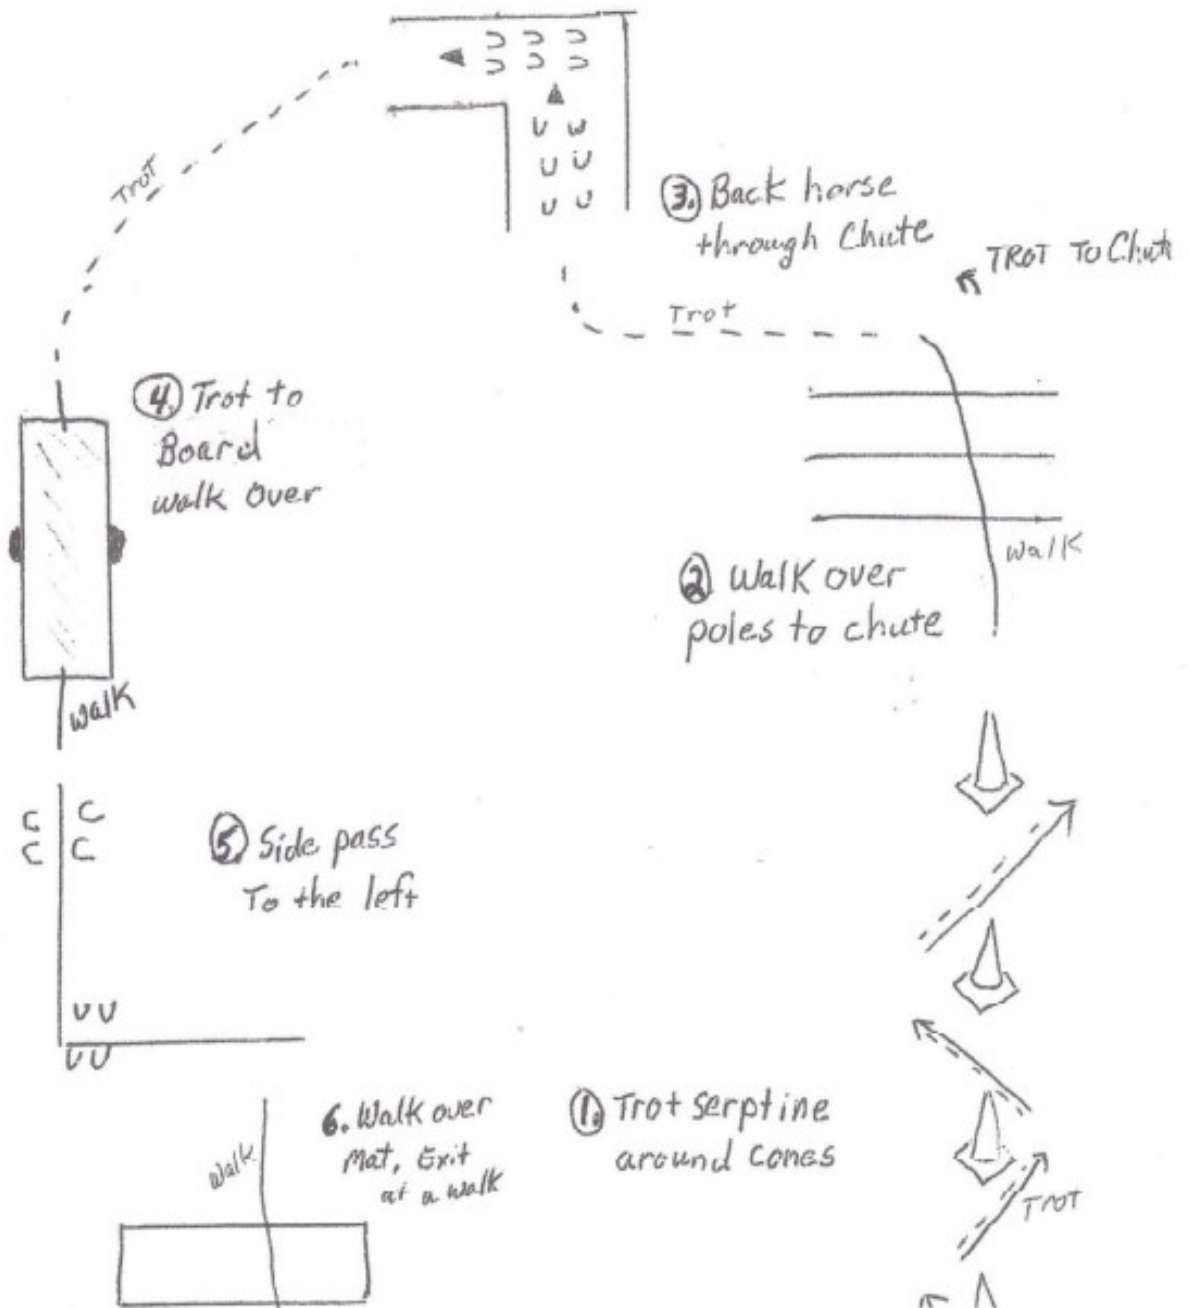 Trot
3. Back horse
through Chute
TROT TO Chute
Trot
4. Trot to
Board
walk Over
walk
2. Walk over
poles to chute
walk
5. Side pass
To the left
6. Walk over
mat, Exit
at a walk
Walk
1. Trot serptine
around cones
TROT